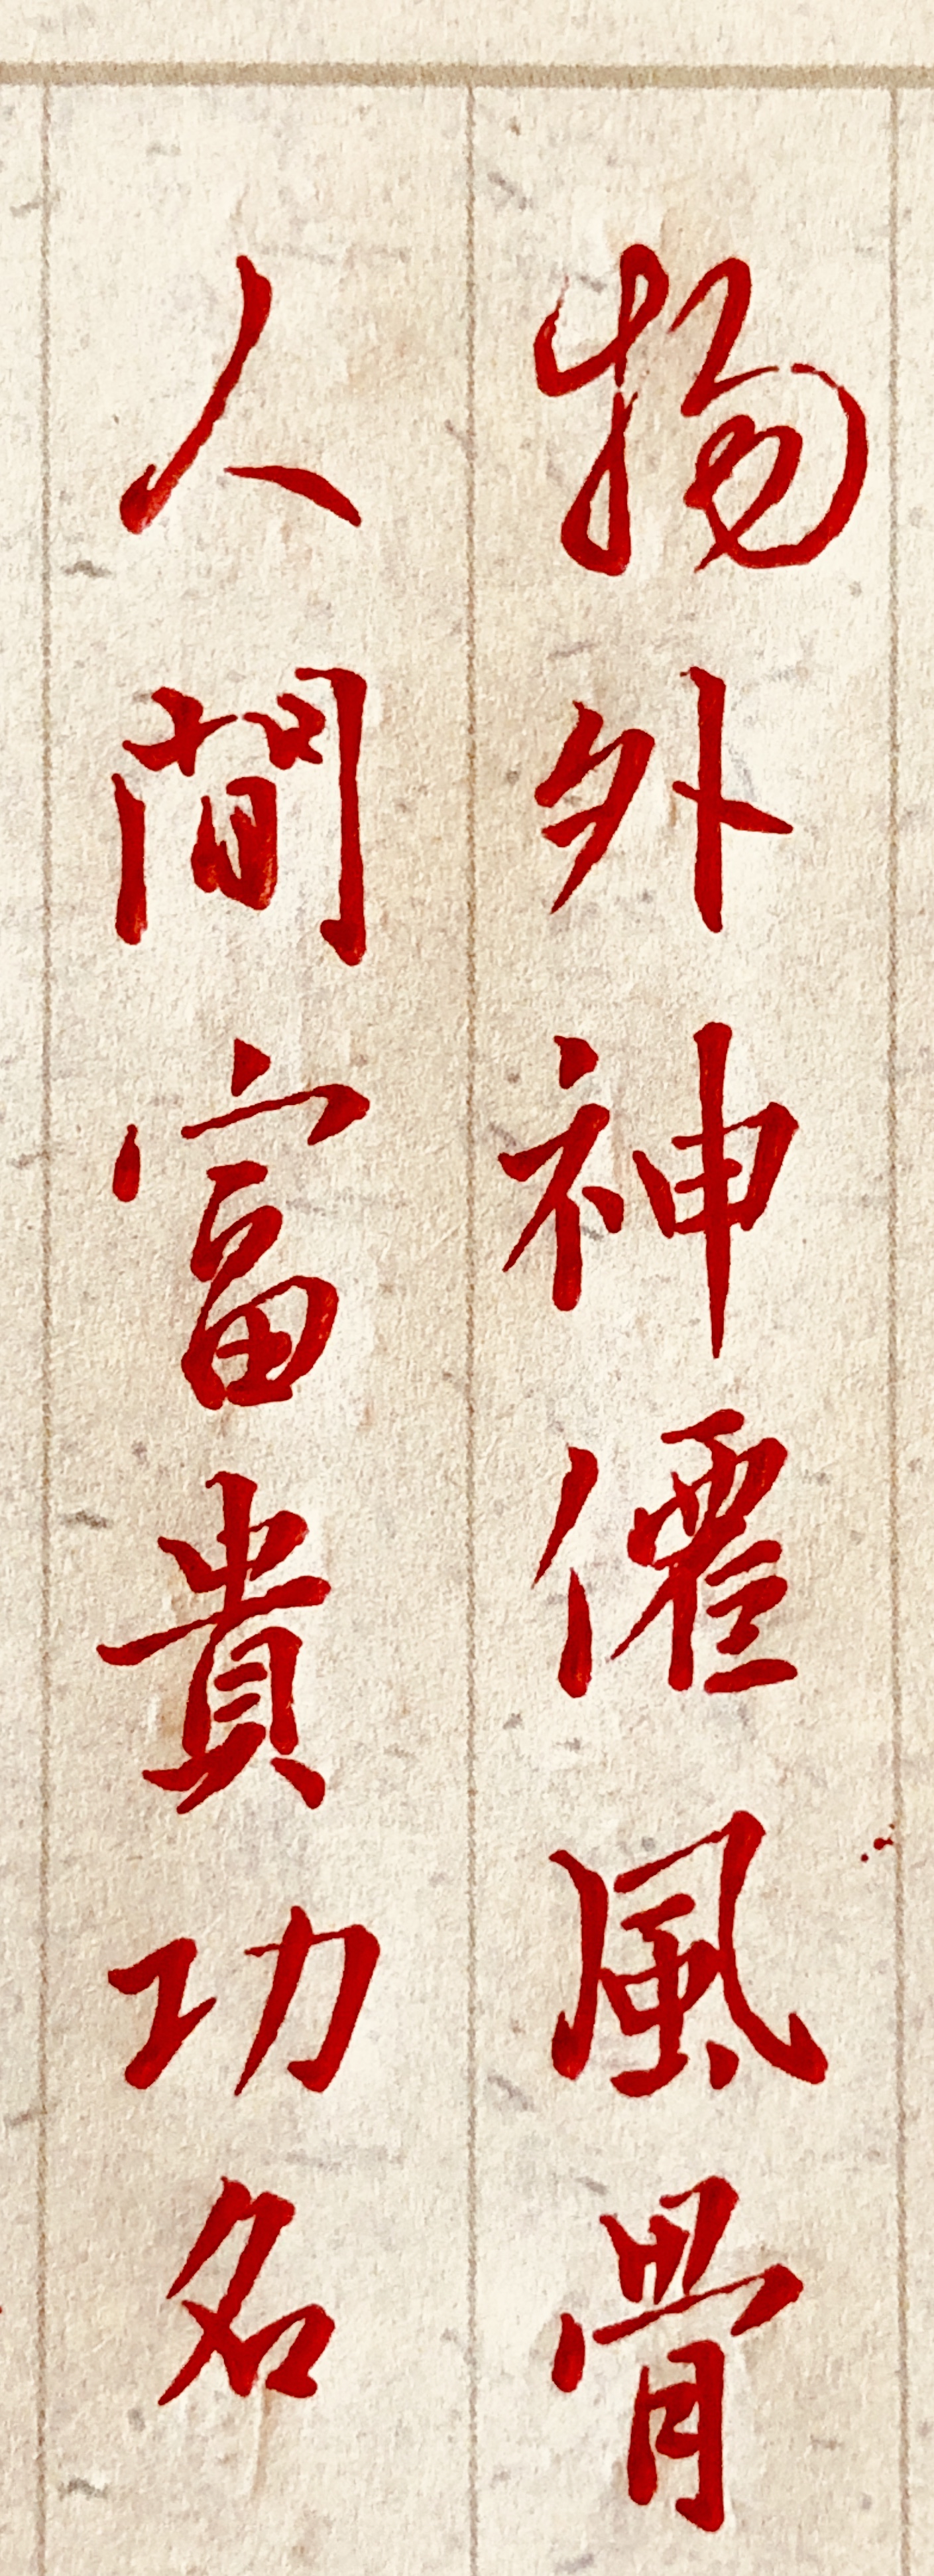 物外神僊風骨
人間富貴功名